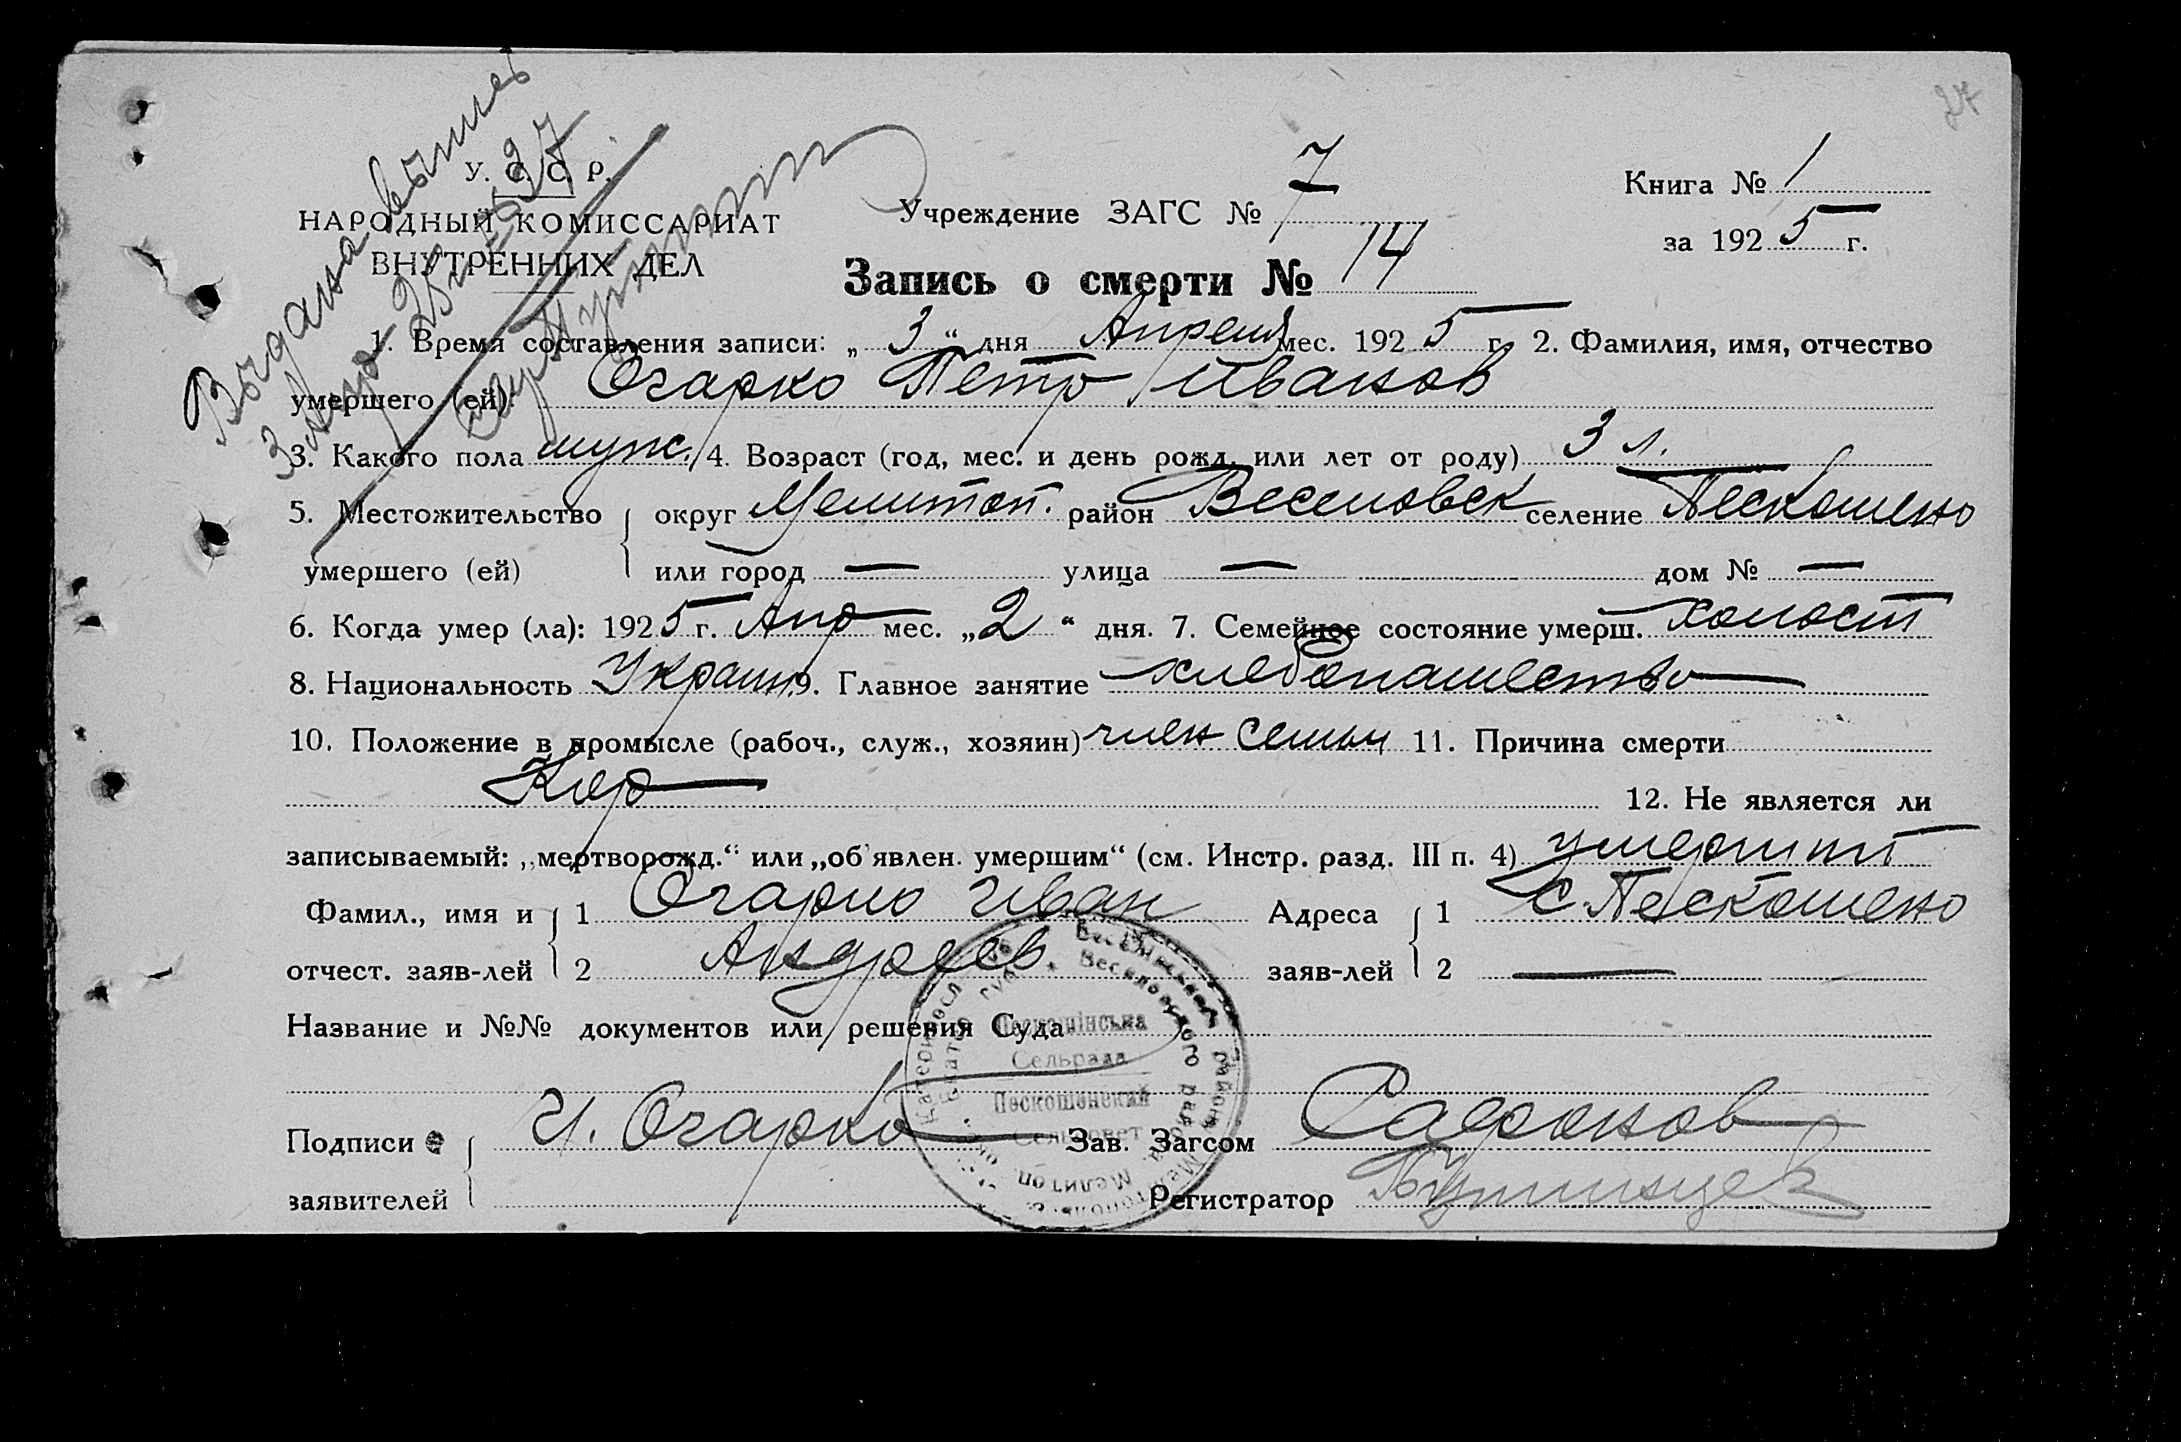 27
Выдана выпись
У. С. С. Р.
НАРОДНЫЙ КОМИССАРИАТ
ВНУТРЕННИХ ДЕЛ
Учреждение ЗАГС № 7
Книга № 1
за 1925 г.
Запись о смерти № 14
1. Время составления записи: „3“ дня Апреля мес. 1925 г. 2. Фамилия, имя, отчество
умершего (ей): Огарко Петр Иванов
3. Какого пола муж. 4. Возраст (год, мес. и день рожд. или лет от роду) 3 л.
5. Местожительство округ Мелитоп. район Веселовск селение Пескошено
умершего (ей) или город — улица — дом № —
6. Когда умер (ла): 1925 г. Апр мес. „2“ дня. 7. Семейное состояние умерш. холост
8. Национальность Украин. 9. Главное занятие хлебопашество
10. Положение в промысле (рабоч., служ., хозяин) член семьи 11. Причина смерти
Кор 12. Не является ли
записываемый: „мертворожд.“ или „об'явлен. умершим“ (см. Инстр. разд. III п. 4) умерший
Фамил., имя и 1 Огарко Иван Адреса 1 с. Пескошено
отчест. заяв-лей 2 Андреев заяв-лей 2 —
Название и №№ документов или решения Суда
Пескошінська
Сельрада
Пескошенский
Сельсовет
Подписи И. Огарко Зав. Загсом Сафонов
заявителей Регистратор